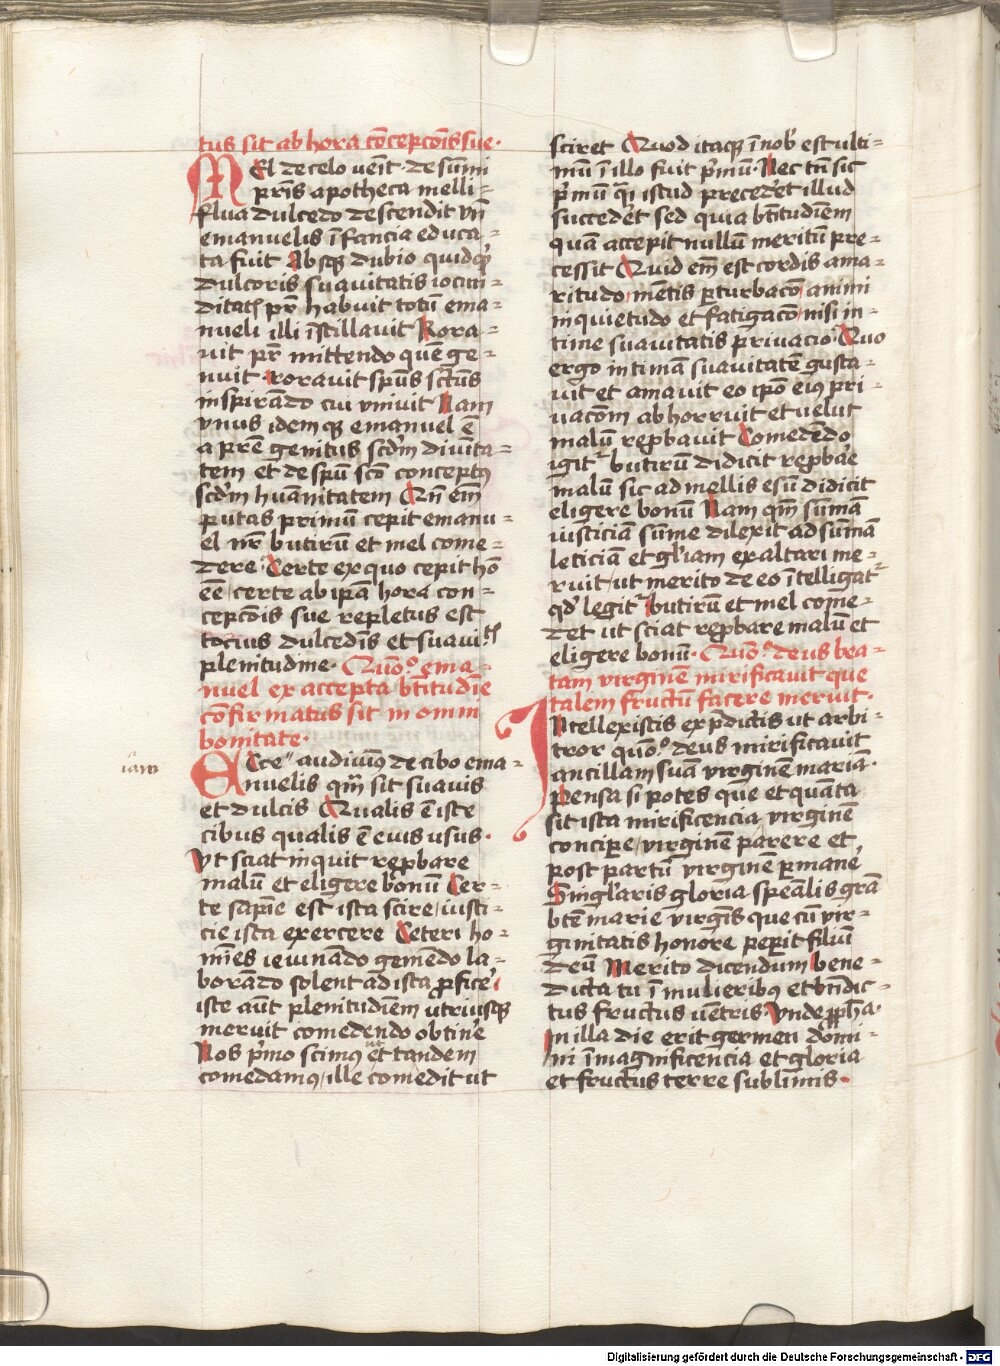 tus sit ab hora c̄oncepc̄ois sue·
Mel de celo ven̄it· de sūmi
pr̄is apotheca melli-
flua dulcedo descendit vn̄
emanuelis īfancia educa-
ta fuit Absqȝ dubio quidq̄
dulcoris suauitatis iocun-
ditatis pr̄ habuit totū ema-
nueli illi īstillauit Rora-
uit pr̄ mittendo quē ge-
nuit rorauit sp̄us sc̄tus
inspirādo cui vniuit Nam
vnus idemqȝ emanuel ē
a pr̄e genitus scd̄m diuīta-
tem et de sp̄u sc̄o conceptꝰ
scd̄m hūanitatem Qn̄ em̄
putas primū cepit emanu-
el nr̄ butirū et mel come-
dere Certe ex quo cepit hō
ēe certe ab ip̄a hora con-
cepc̄ois sue repletus est
tocius dulced̄is et suauitatis
plenitudine· Quō ema-
nuel ex accepta bt̄itudīe
cōfirmatus sit in omni
bonitate·
Ecce audiuimꝰ de cibo ema-
nuelis qm̄ sit suauis
et dulcis Qualis ē iste
cibus qualis ē eius usus·
Vt sciat inquit rep̄bare
malū et eligere bonū Cer-
te sapīe est ista scire iusti-
cie ista exercere Ceteri ho-
mīes ieiunādo gemēdo la-
borādo solent ad ista p̄ficēe
iste aūt plenitudīem utriusqȝ
meruit comedendo obtinēe
Nos p̄mo scimꝰ ut et tandem
comedamꝰ ille comedit ut
iam
sciret Quod itaqȝ ī nob̄ est ulti-
mū ī illo fuit p̄mū· Nec tn̄ sic
p̄mū q̄ istud precedēt illud
succedēt sed quia bt̄itudīem
quā accepit nullū meritū pre-
cessit Quid em̄ est cordis ama-
ritudo mētis p̄turbacō animi
inquietudo et fatigacō nisi in-
time suauitatis p̄riuacio Quo
ergo intimā suauitatē gusta-
uit et amauit eo ip̄o eiꝰ pri-
uacōm abhorruit et velut
malū rep̄bauit Comedēdo
igit̄ butirū didicit rep̄bāe
malū sic ad mellis esū didicit
eligere bonū Nam qm̄ sūmā
iusticiā sūme dilexit ad sūmā
leticiā et gl̄iam exaltari me-
ruit ut merito de eo ītelligat̄
qd̄ legit̄ butirū et mel come-
det ut sciat rep̄bare malū et
eligere bonū· Quō deus bea-
tam virginē mirificauit que
talem fructū facere meruit·
Intellexistis ex p̄dictis ut arbi-
tror quō deus mirificauit
ancillam suā virginē mariā·
Pensa si potes que et quāta
sit ista mirificencia virginē
concipe virginē parere et
post partū virginē p̄manē
Singl̄aris gloria spēalis grā
bt̄e marie virgīs que cū vir-
ginitatis honore pep̄it filiū
deū Merito dicendum bene-
dicta tu ī mulieribꝰ et bn̄dic-
tus fructus vētris· Vnde p̄pha·
In illa die erit germen dōmi-
ni ī magnificencia et gloria
et fructus terre sublimis·
Digitalisierung gefördert durch die Deutsche Forschungsgemeinschaft - DFG